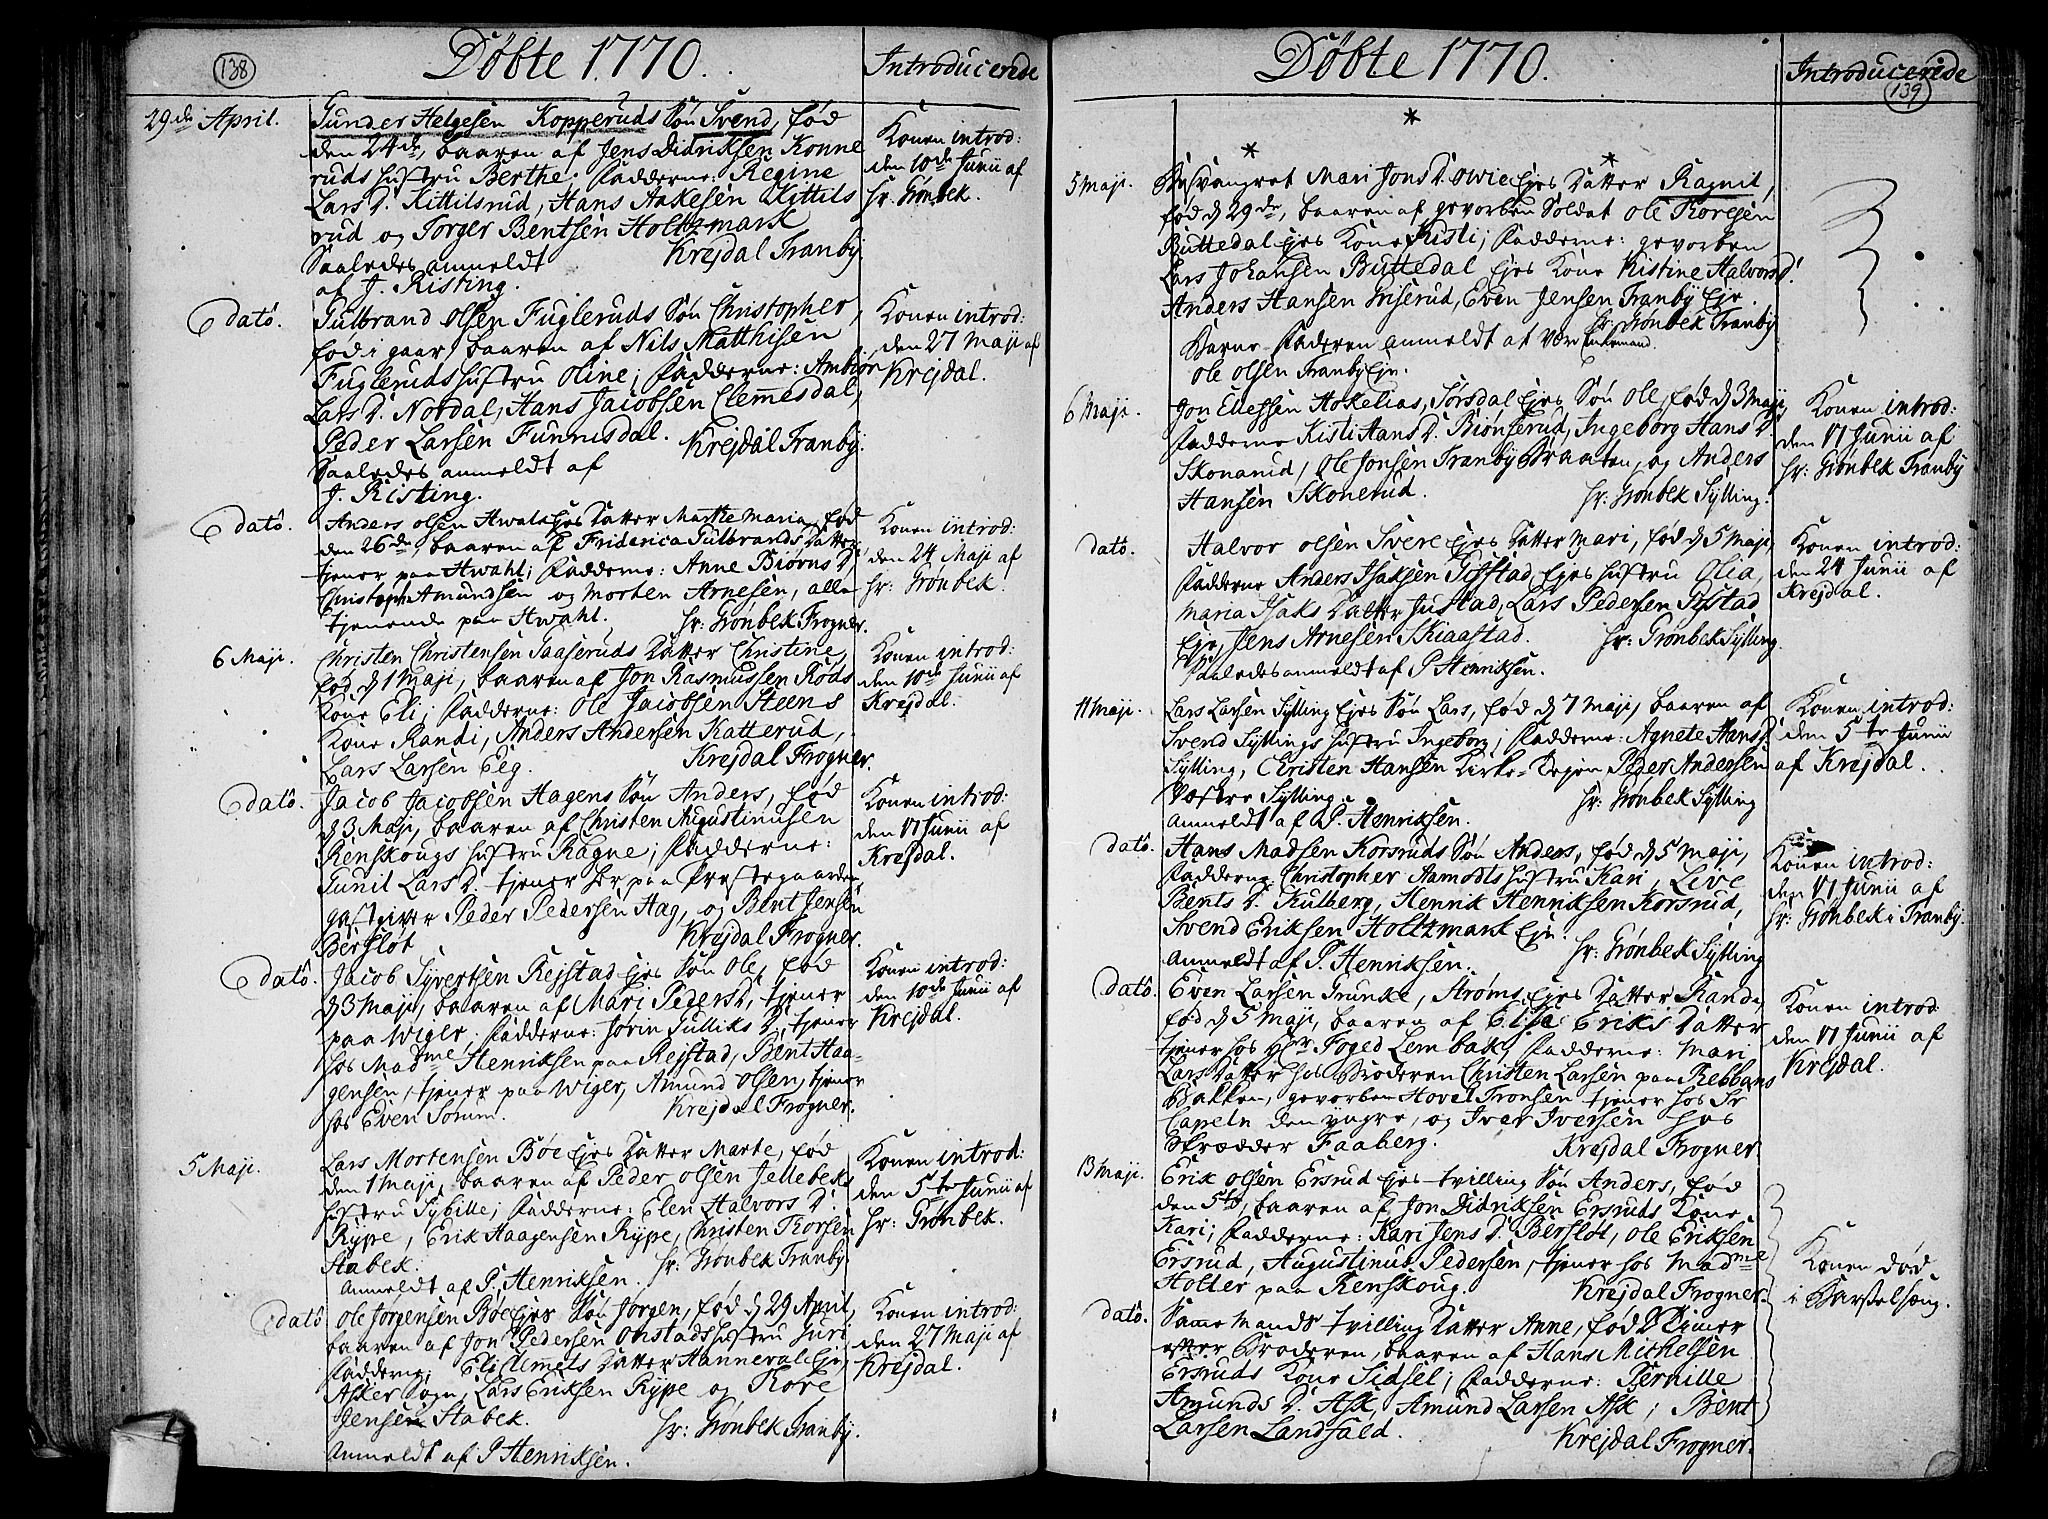 138
Döbte 1770.
Introducerede
29de April.
Gunder Helgesen Kopperuds Sön Svend, född
den 24de, baaren af Jens Didriksen Konne
ruds hustru Berthe. Fadderne: Regine
Lars D. Kittilsrud, Hans Aakesen Kittils
rud og Torger Bentsen Holtzmark
Saaledes anmeldt
Krejdal Tranby.
af J. Risting.
Konen introd:
den 10de Junii af
hr. Grönbek.
dato.
Gulbrand Olsen Fugleruds Sön Christopher,
föd i gaar, baaren af Nils Matthisen
Fugleruds hustru Oline; Fadderne: Ambiör
Lars D. Nordal, Hans Jacobsen Clemmesdal,
Peder Larsen Funnisdal.
Krejdal Tranby.
Saaledes anmeldt af
J. Risting.
Konen introd:
den 27 Maji af
Krejdal.
dato.
Anders Olsen Hwals hs Datter Marthe Maria, föd
den 26de, baaren af Friderica Gulbrands Datter,
tjener paa Hwahl; Fadderne: Anne Biörns D.
Christoph Amundsen og Morten Arnesen, alle
tjenende paa Hwahl.
hr: Grönbek Frogner.
Konen introd:
den 24 Maji af
hr: Grönbek.
6 Maji.
Christen Christensen Gaaseruds Datter Christine,
föd d 1 Maji, baaren af Jon Rasmussen Röds
Kone Eli; Fadderne: Ole Jacobsen Steens
Kone Randi, Anders Andersen Katterud,
Lars Larsen Eeg.
Krejdal Frogner.
Konen introd:
den 10de Junii af
Krejdal.
dato.
Jacob Jacobsen Hagens Sön Anders, föd
d 3 Maji, baaren af Christen Augustinusen
Renskougs hustru Ragne; Fadderne:
Gunil Lars D. tjener her paa Præstegaarden
gastgiver Peder Pedersen Hag, og Bent Jensen
Berslöt
Krejdal Frogner.
Konen introd:
den 17 Junii af
Krejdal.
dato.
Jacob Syvertsen Rejstad Ejes Sön Ole, föd
d 3 Maji, baaren af Mari Peders D, tjener
paa Wiger, Fadderne: Sörin Gulliks D, tjener
hos Madme Henriksen paa Rejstad, Bent Haa-
gensen, tjener paa Wiger, Amund Olsen, tjener
hos Even Sörum.
Krejdal Frogner.
Konen introd:
den 10de Junii af
Krejdal.
5 Maji.
Lars Mortensen Böe Ejes Datter Marte, föd
den 1 Maji, baaren af Peder Olsen Jellebeks
hustru Sybille; Fadderne: Elen Halvors D.
Rype, Erik Haagensen Rype, Christen Korsen
Stabek.
hr: Grönbek Tranby.
Anmeldt af P. Henriksen.
Konen introd:
den 5te Junii af
hr: Grönbek.
dato
Ole Jörgensen Böe Ejes Sön Jörgen, föd d 29 April,
baaren af Jon Pedersen Onstads hustru Guri
Fadderne: Eli Clemets Datter Hanneval Eje,
Asker Sogn, Lars Eriksen Rype og Kore
Jensen Stabek.
hr: Grönbek Tranby.
Anmeldt af P Henriksen.
Konen introd:
den 27 Maji af
Krejdal.
Döbte 1770.
Introducerede
139
5 Maji.
Besvangret Mari Jons D. Owie Ejes Datter Ragnil,
föd d 29de, baaren af gevorben Soldat Ole Koresen
Buttedal Ejes Kone Kisti; Fadderne: gevorben
Lars Johansen Buttedal Ejes Kone Kistine Halvors D.
Anders Hansen Griserud, Even Jensen Tranby Eje.
hr: Grönbek Tranby
Barne-Faderen anmeldt at være Enkemand
Ole Olsen Tranby Eje.
6 Maji.
Jon Ellefsen Askelias, Sörsdal Ejes Sön Ole, föd d 3 Maji,
Fadderne Kisti Hans D. Biönserud, Ingeborg Hans D
Skonarud, Ole Jonsen Tranby Braaten, og Anders
Hansen Skonerud.
hr: Grönbek Sylling.
Konen introd:
den 17 Junii af
hr: Grönbek Tranby
dato.
Halvor Olsen Svere Ejes Datter Mari, föd d 5 Maji,
Fadderne Anders Isaksen Gifstad, Ejes hustru Olia,
Maria Isaks Datter Justad, Lars Pedersen Gifstad
Eje, Jens Arnesen Skiaastad.
hr: Grönbek Sylling.
Saaledes anmeldt af P Henriksen.
Konen introd:
den 24 Junii af
Krejdal.
11 Maji.
Lars Larsen Sylling Ejes Sön Lars, föd d 7 Maji, baaren af
Svend Syllings hustru Ingeborg; Fadderne: Agnete Hans D.
Sylling, Christen Hansen Kirke-Dejen Peder Andersen
Vestre Sylling.
hr: Grönbek Sylling
Anmeldt af P. Henriksen.
Konen introd:
den 5te Junii
af Krejdal.
dato.
Hans Madsen Korsruds Sön Anders, föd d 5 Maji,
Fadderne Christopher Aamodts hustru Kari, Live
Bents D. Kulberg, Henrik Henriksen Korsrud,
Svend Eriksen Holtzmark Eje.
hr: Grönbek Sylling
Anmeldt af P. Henriksen.
Konen introd:
den 17 Junii af
hr: Grönbek i Tranby.
dato.
Even Larsen Grunke, Ströms Ejes Datter Rande,
föd d 5 Maji, baaren af Elise Eriks Datter
tjener hos Hr Foged Lembak, Fadderne: Mari
Lars Datter hos Broderen Christen Larsen paa Rebbans
Bakken, gevorben Hovel Tronsen tjener hos Sr
Capeln den yngre, og Iver Iversen hos
Skrædder Faaberg.
Krejdal Frogner
Konen introd
den 17 Junii af
Krejdal.
13 Maji.
Erik Olsen Ersrud Ejes tvilling Sön Anders, föd
den 5te, baaren af Jon Didriksen Ersruds Kone
Kari; Fadderne: Kari Jens D. Berslöt, Ole Eriksen
Ersrud, Augustinus Pedersen, tjener hos Madme
Holter paa Renskoug.
Krejdal Frogner.
Konen död
i Barselseng.
dato.
Samme Mands tvilling Datter Anne, föd 2 Timer
efter Broderen, baaren af Hans Michelsen
Ersruds Kone Sidsel; Fadderne: Pernille
Amunds D. Ask, Amund Larsen Ask, Bent
Larsen Landfald.
Krejdal Frogner.